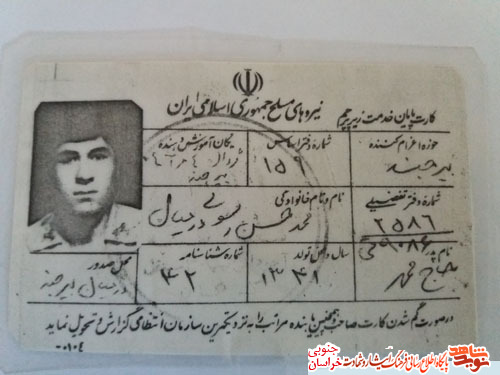 کارت پایان خدمت زیر پرچم
نیروهای مسلح جمهوری اسلامی ایران
حوزه اعزام کننده
بیرجند
شماره دفتر اساس
۱۵۹
یگان آموزش دهنده
بیرجند
شماره دفتر تفضیلی
۲۵۸۶
نام و نام خانوادگی
محمد حسن رسولی درمیان
نام پدر
حاج محمد
سال و محل تولد
۱۳۴۱
شماره شناسنامه
۴۲
محل صدور
درمیان بیرجند
درصورت گم شدن کارت صاحب و همچنین یابنده مراتب را به نزدیکترین سازمان انتظامی گزارش و تحویل نماید
نوید شاهد
خراسان جنوبی
پایگاه اطلاع رسانی فرهنگ ایثار و شهادت